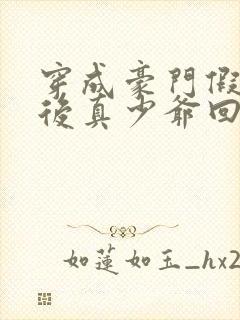 穿成豪門假
後真少爺回
如蓮如玉_hx2